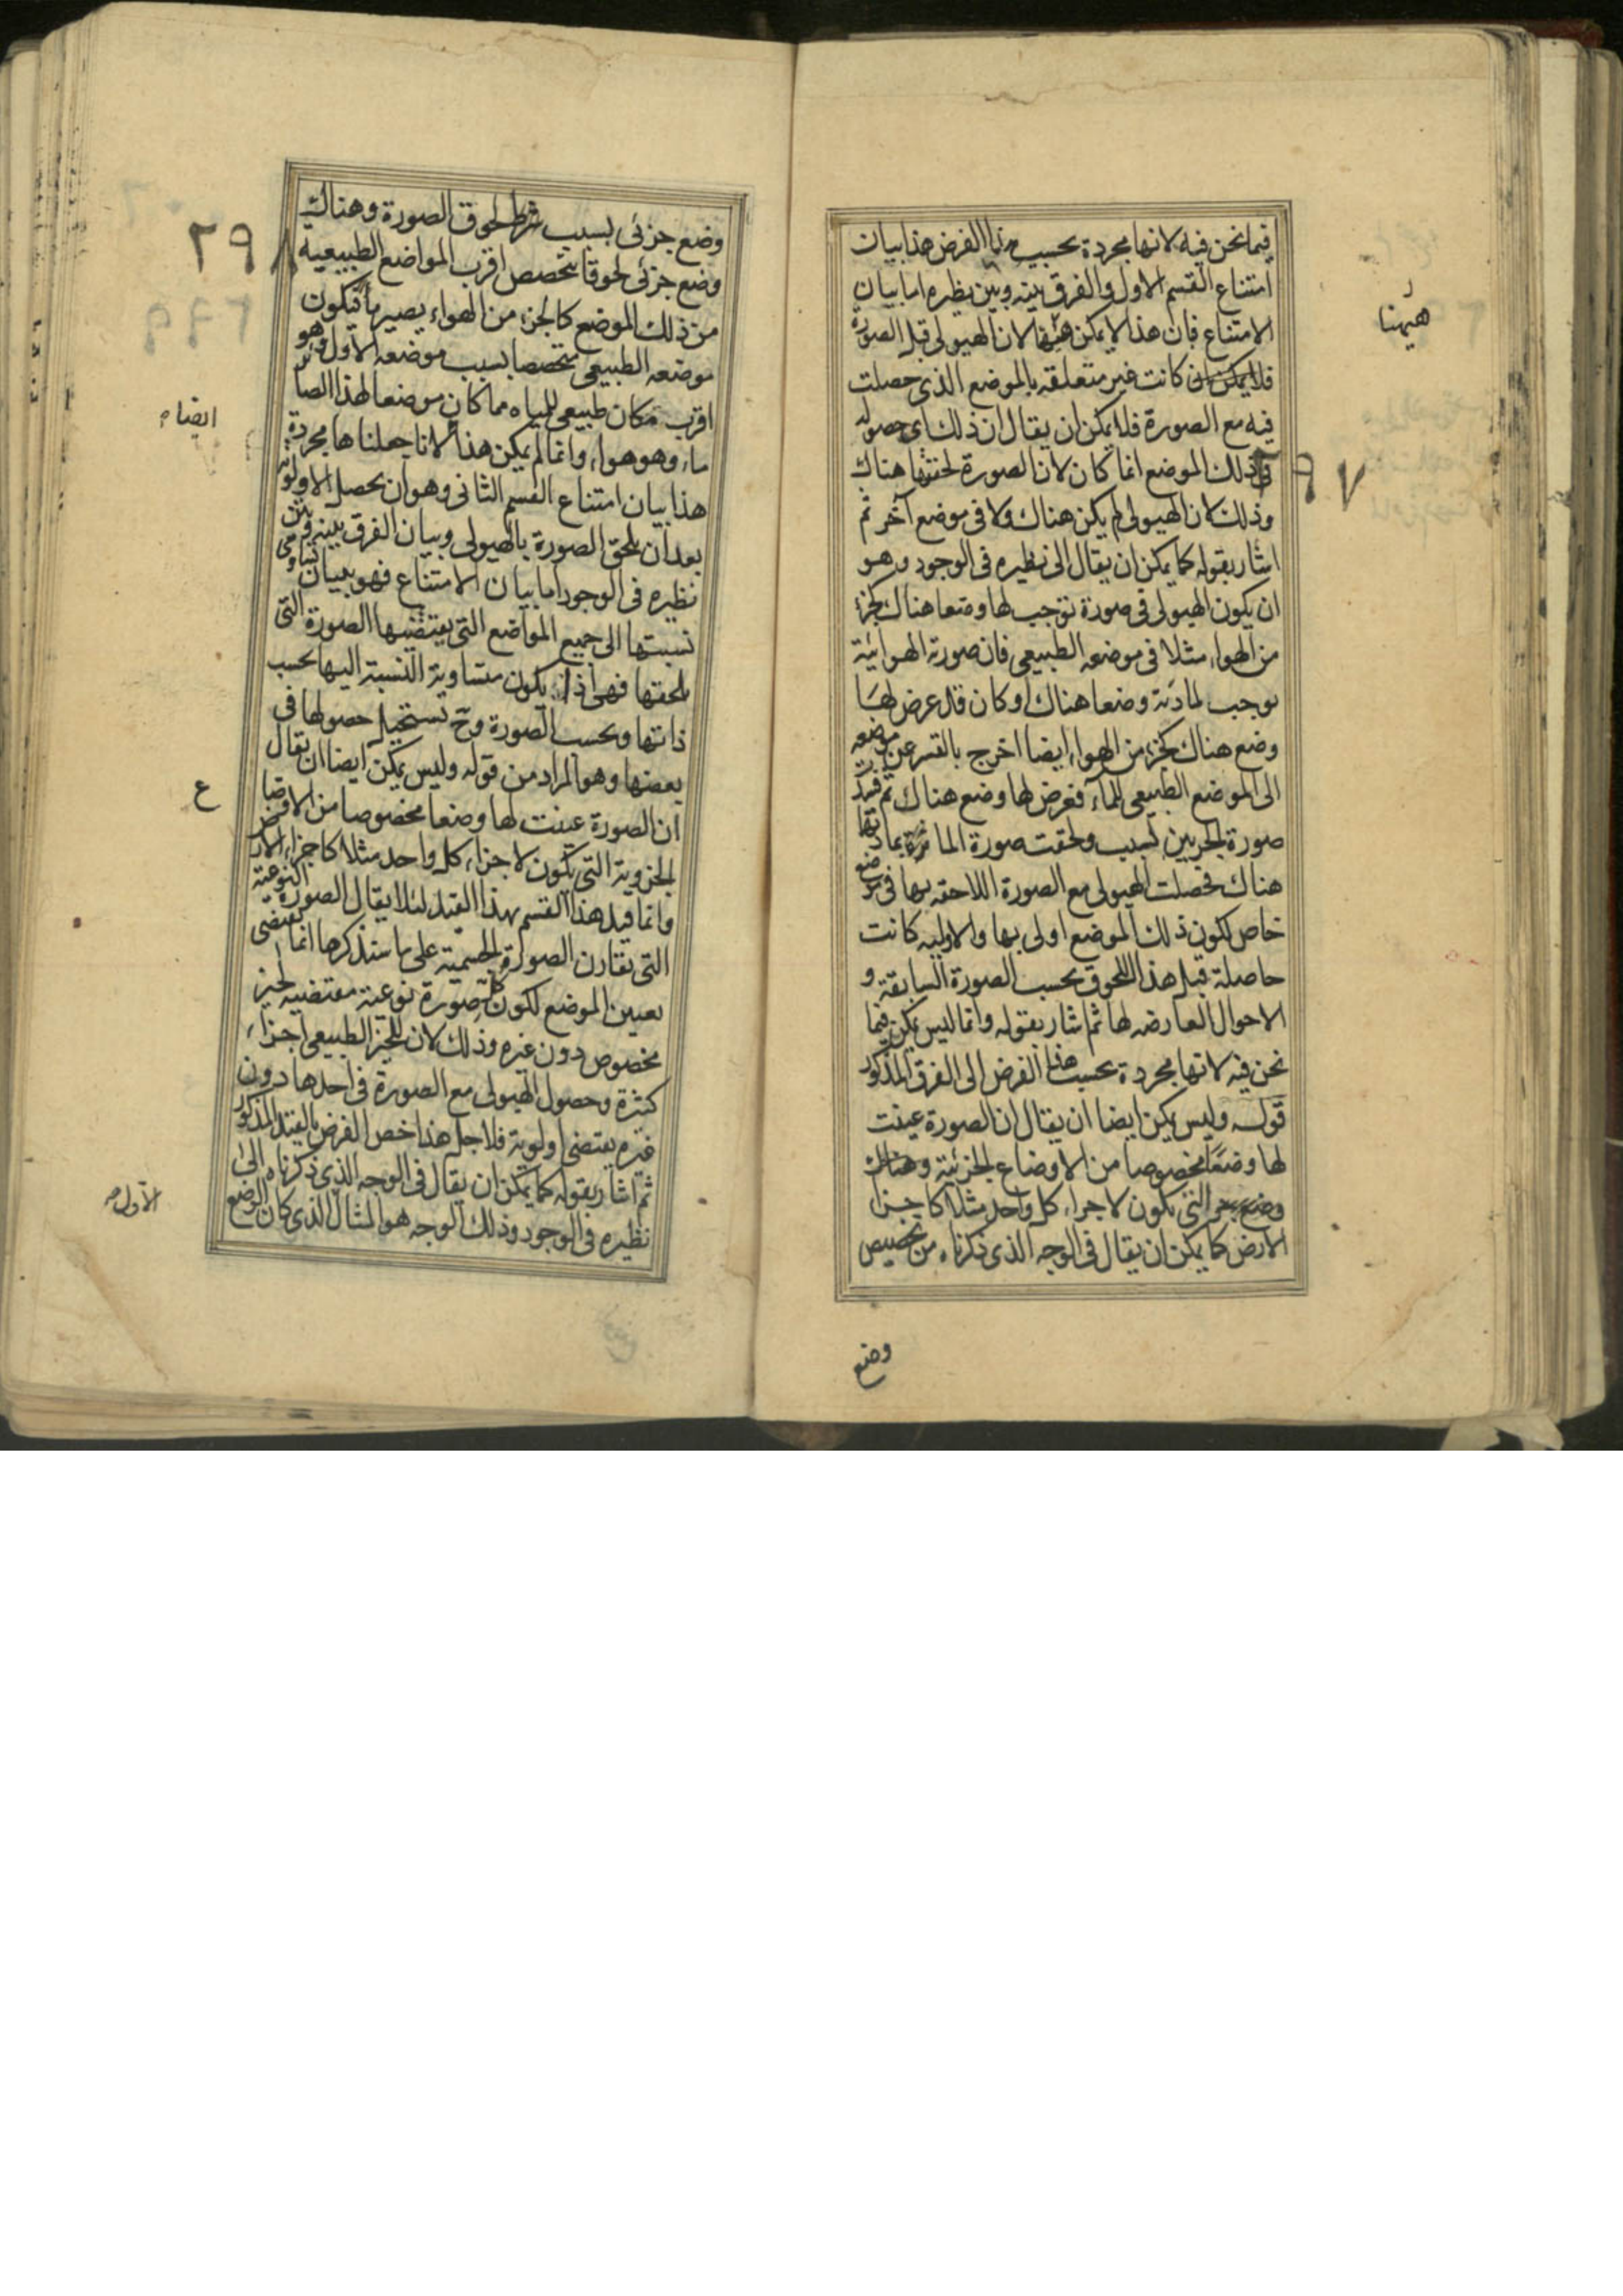 فيما نحن فيه لانها مجردة بحسب هذا الفرض هذا بيان
امتناع القسم الاول والفرق بينه وبين نظيره اما بيان
الامتناع فبان هذا لا يمكن ههنا لان الهيولى قبل الصورة
كانت غير متعلقه بالموضع الذى حصلت
فيه مع الصورة فلا يمكن ان يقال ان ذلك اى حصوله
فى ذلك الموضع انما كان لان الصورة لحقتها هناك
وذلك لان الهيولى لم يكن هناك ولا فى موضع آخر ثم
اشار بقوله كما يمكن ان يقال الى نظيره فى الوجود وهو
ان يكون الهيولى فى صورة توجب لها وضعا هناك كجزء
من الهواء مثلا فى موضعه الطبيعى فان صورته الهوائية
توجب لمادته وضعا هناك او كان قد عرض لها
وضع هناك كجزء من الهواء ايضا اخرج بالقسر عن موضعه
الى الموضع الطبيعى للماء فعرض لها وضع هناك ثم
صورة الجزيين لسبب ولحقت صورة المائية بمادتها
هناك فحصلت الهيولى مع الصورة اللاحقه بها فى موضع
خاص لكون ذلك الموضع اولى بها والاوليه كانت
حاصلة قبل هذا اللحوق بحسب الصورة السابقة و
الاحوال العارضه لها ثم اشار بقوله وانما ليس يمكن فيما
نحن فيه لانها مجردة بحسب هذا الفرض الى الفرق المذكور
قوله وليس يمكن ايضا ان يقال ان الصورة عينت
لها وضعا مخصوصا من الاوضاع الجزئية
التى يكون لاجزاء كل واحد مثلا كاجزاء
الارض كما يمكن ان يقال فى الوجه الذى ذكرناه من تخصيص
وضع
ههنا
٩٧
وضع جزئى بسبب شرط لحوق الصورة وهناك
وضع جزئى لحوقا يتخصص اقرب المواضع الطبيعيه
من ذلك الموضع كالجزء من الهواء يصير ماء فيكون
موضعه الطبيعى متخصصا بسبب موضعه الاول وهو
اقرب مكان طبيعى للمياه مما كان موضعا لهذا الصائر
ماء وهو هواء وانما لم يمكن هذا لانا جعلناها مجردة
هذا بيان امتناع القسم الثانى وهو ان يحصل الاولوية
بعد ان يلحق الصورة بالهيولى وبيان الفرق بينه وبين
نظيره فى الوجود اما بيان الامتناع فهو ببيان تساوى
نسبتها الى جميع المواضع التى يقتضيها الصورة التى
يلحقها فهى اذا يكون متساوية النسبة اليها بحسب
ذاتها وبحسب الصورة وح يستحيل حصولها فى
بعضها وهو المراد من قوله وليس يمكن ايضا ان يقال
ان الصورة عينت لها وضعا مخصوصا من الاوضاع
الجزوية التى يكون لاجزاء كل واحد مثلا كاجزاء الارض
وانما قيد هذا القسم بهذا القيد لئلا يقال الصورة النوعية
التى يقارن الصورة الجسمية على ما سنذكرها انما يقتضى
تعيين الموضع لكون كل صورة نوعية مقتضيه لحيز
مخصوص دون غيره وذلك لان للحيز الطبيعى اجزاء
كثيرة وحصول الهيولى مع الصورة فى احدها دون
غيره يقتضى اولوية فلاجل هذا خص الفرض بالقيد المذكور
ثم اشار بقوله كما يمكن ان يقال فى الوجه الذى ذكرناه الى
نظيره فى الوجود وذلك الوجه هو المثال الذى كان الوضع
٢٩٨
ايضا
ع
الاول